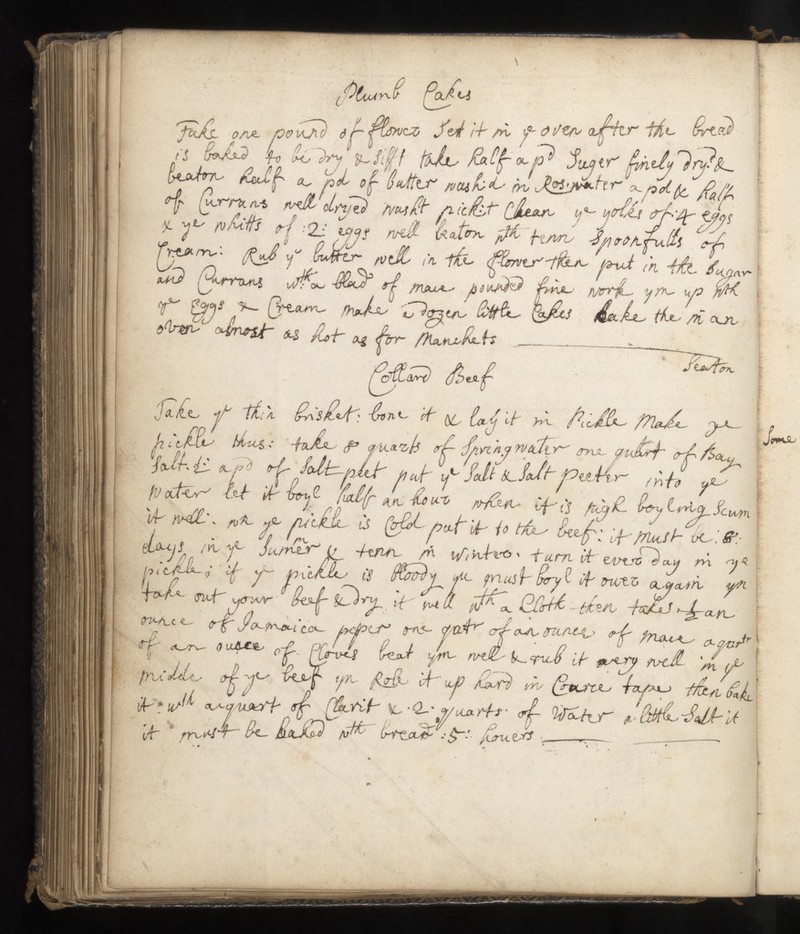 Plumb Cakes
Take one pound of flower Set it in ye oven after the bread
is baked to be dry & Sifft take half a pd Suger finely dryd &
beaton half a pd of butter washd in Roswater a pd & half
of Currans well dryed washt pickt Clean ye yolks of :4 eggs
& ye whitts of :2: eggs well beaton wth tenn Spoonfulls of
Cream: Rub ye butter well in the flower then put in the Sugar
and Currans wth a blad of mace pounded fine work ym up wth
ye Eggs & Cream make a dozen little Cakes bake the in an
oven almost as hot as for Manchets
Seaton
Collard Beef
Take ye thin brisket: bone it & lay it in Pickle Make ye
pickle thus: take 8 quarts of Springwater one quart of Bay
Salt: ½: a pd of Salt peet put ye Salt & Salt peeter into ye
water let it boyl half an hour when it is high boyling Scum
it well: wn ye pickle is Cold put it to the beef: it must be :8:
days in ye Sumer & tenn in winter. turn it ever day in ye
pickle; if ye pickle is bloody yu must boyl it over again yn
take out your beef & dry it well wth a Cloth then take ½ an
ounce of Jamaica peper one qutr of an ounce of mace a qurtr
of an ounce of Cloves beat ym well & rub it very well in ye
midde of ye beef yn Role it up hard in Cource tape then bake
it wth a quart of Clarit & :2: quarts of Water a little Salt it
it must be baked wth bread :5: houers
Some